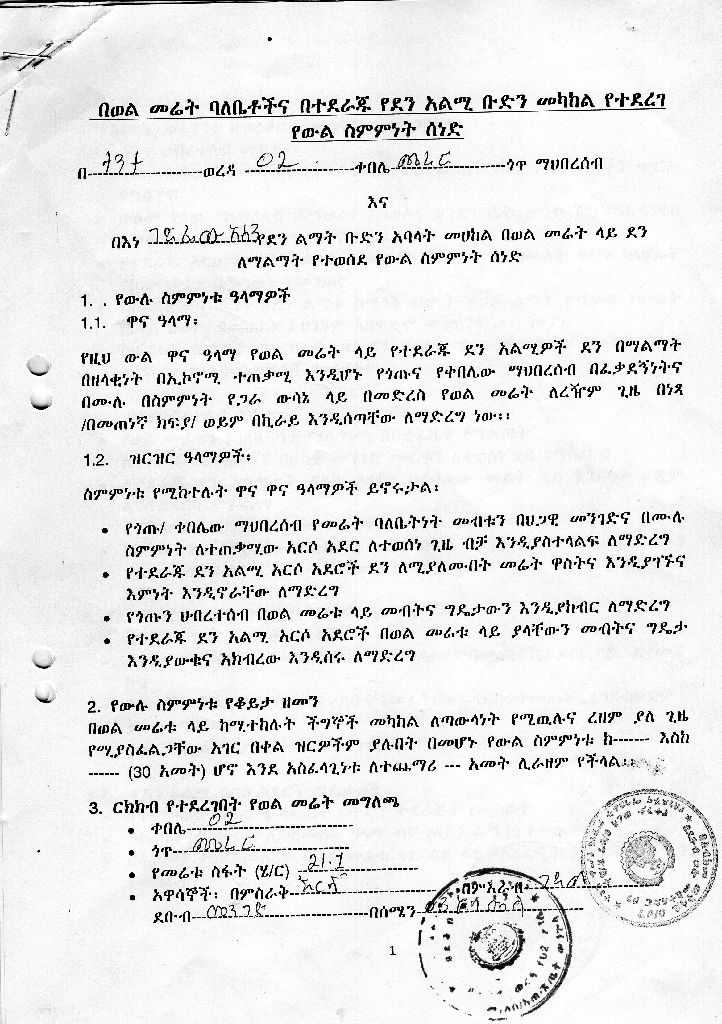 በወል መሬት ባለቤቶችና በተደራጁ የደን አልሚ ቡድን መካከል የተደረገ
የውል ስምምነት ሰነድ
በ---------ወረዳ ---02---ቀበሌ---------ጎጥ ማህበረሰብ
እና
በእነ ---------የደን ልማት ቡድን አባላት መሀከል በወል መሬት ላይ ደን
ለማልማት የተወሰደ የውል ስምምነት ሰነድ
1. . የውሉ ስምምነቱ ዓላማዎች
1.1. ዋና ዓላማ፡
የዚህ ውል ዋና ዓላማ የወል መሬት ላይ የተደራጁ ደን አልሚዎች ደን በማልማት
በዘላቂነት በኢኮኖሚ ተጠቃሚ እንዲሆኑ የጎጡና የቀበሌው ማህበረሰብ በፈቃደኝነትና
በሙሉ በስምምነት የጋራ ውሳኔ ላይ በመድረስ የወል መሬት ለረዥም ጊዜ በነጻ
/በመጠነኛ ክፍያ/ ወይም በኪራይ እንዲሰጣቸው ለማድረግ ነው፡፡
1.2. ዝርዝር ዓላማዎች፡
ስምምነቱ የሚከተሉት ዋና ዋና ዓላማዎች ይኖሩታል፡
• የጎጡ/ ቀበሌው ማህበረሰብ የመሬት ባለቤትነት መብቱን በህጋዊ መንገድና በሙሉ
ስምምነት ለተጠቃሚው አርሶ አደር ለተወሰነ ጊዜ ብቻ እንዲያስተላልፍ ለማድረግ
• የተደራጁ ደን አልሚ አርሶ አደሮች ደን ለሚያለሙበት መሬት ዋስትና እንዲያገኙና
እምነት እንዲኖራቸው ለማድረግ
• የጎጡን ህብረተሰብ በወል መሬቱ ላይ መብትና ግዴታውን እንዲያከብር ለማድረግ
• የተደራጁ ደን አልሚ አርሶ አደሮች በወል መሬቱ ላይ ያላቸውን መብትና ግዴታ
እንዲያውቁና አክብረው እንዲሰሩ ለማድረግ
2. የውሉ ስምምነቱ የቆይታ ዘመን
በወል መሬቱ ላይ ከሚተከሉት ችግኞች መካከል ለጣውላነት የሚዉሉና ረዘም ያለ ጊዜ
የሚያስፈልጋቸው አገር በቀል ዝርዎችም ያሉበት በመሆኑ የውል ስምምነቱ ከ------- እስከ
------ (30 አመት) ሆኖ እንደ አስፈላጊነቱ ለተጨማሪ --- አመት ሊራዘም የችላል፡፡
3. ርክክብ የተደረገበት የወል መሬት መግለጫ
• ቀበሌ---02---
• ጎጥ---------
• የመሬቱ ስፋት (ሄ/ር) ---21.1---
• አዋሳኞች፡ በምስራቅ--------- በምእራብ---------
ደቡብ---------በሰሜን---------
1